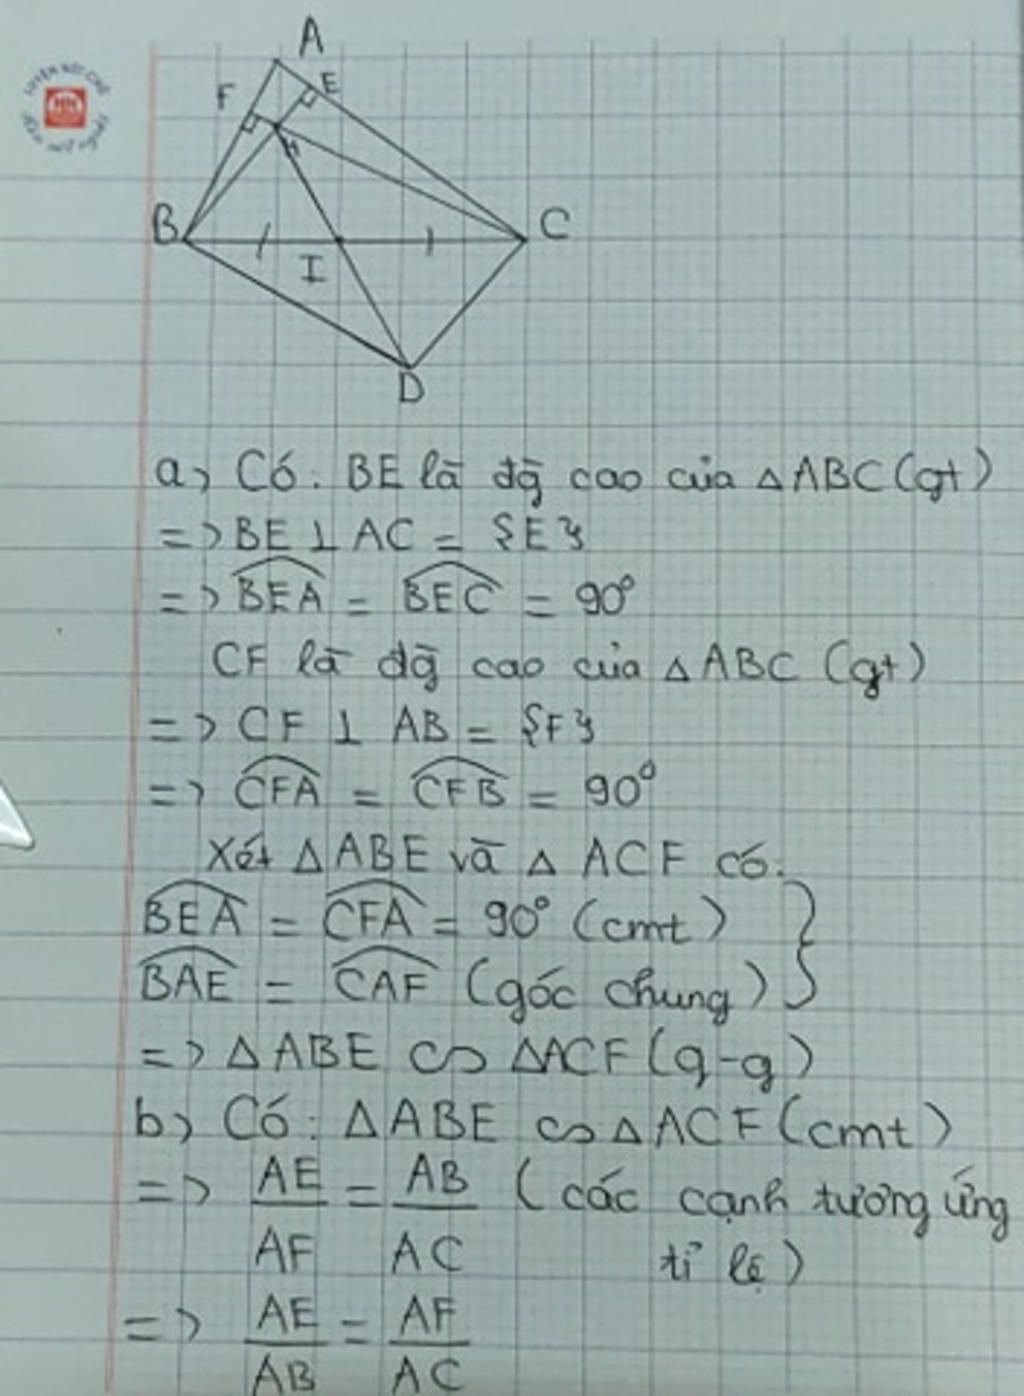 A
F
E
H
B
C
I
D
a) Có: BE là đg̃ cao của △ABC (gt)
=> BE ⊥ AC = {E}
=> \widehat{BEA} = \widehat{BEC} = 90°
CF là đg̃ cao của △ABC (gt)
=> CF ⊥ AB = {F}
=> \widehat{CFA} = \widehat{CFB} = 90°
Xét △ABE và △ ACF có:
\widehat{BEA} = \widehat{CFA} = 90° (cmt) }
\widehat{BAE} = \widehat{CAF} (góc chung) }
=> △ABE ∽ △ACF (g-g)
b) Có: △ABE ∽ △ACF (cmt)
=> AE/AF = AB/AC (các cạnh tương ứng
tỉ lệ)
=> AE/AB = AF/AC